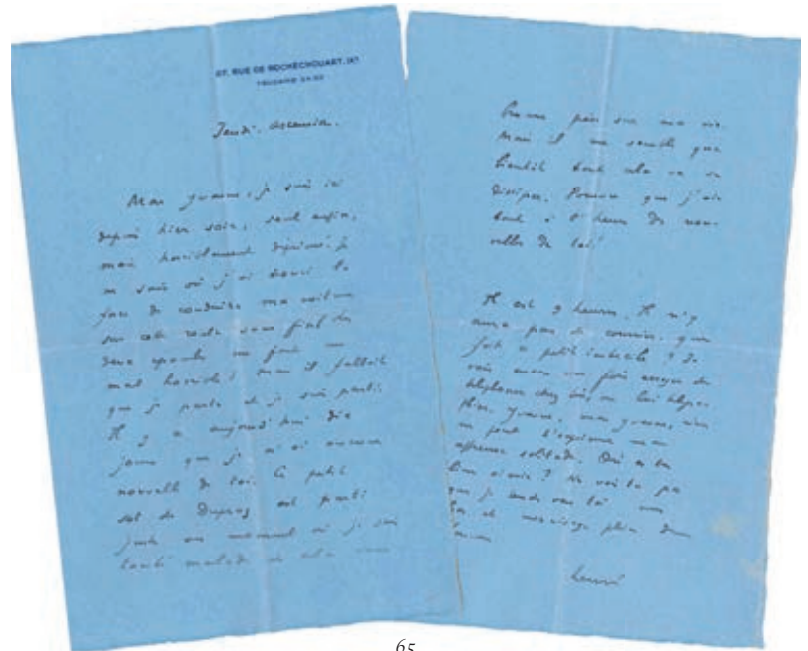 67, RUE DE ROCHECHOUART, IXE
TRUDAINE
Jeudi. Ascension.
Mon Yvonne, je suis ici
depuis hier soir, seul enfin,
mais horriblement déprimé. je
ne sais où j'ai trouvé la
force de conduire ma voiture
sur cette route sans fin! les
deux épaules me font un
mal horrible! mais il fallait
que je parte et je suis parti.
Il y a aujourd'hui dix
jours que je n'ai aucune
nouvelle de toi. Ce petit
sot de Dupraz est parti
juste au moment où je suis
tombé malade et cela
pas sur ma vie.
Mais il me semble que
bientôt tout cela va se
dissiper. Pourvu que j'aie
tout à l'heure de nou-
velles de toi!
Il est 9 heures. Il n'y
aura pas de courrier. que
fait ce petit imbécile? Je
vais encore une fois essayer de
téléphoner chez lui, ou lui télégra-
phier. Yvonne, mon Yvonne, rien
ne peut s'exprimer mon
affreuse solitude. Où es tu
bien aimée? Ne vois tu pas
que je tends vers toi mes
bras et mon visage plein de
larmes
henri
65